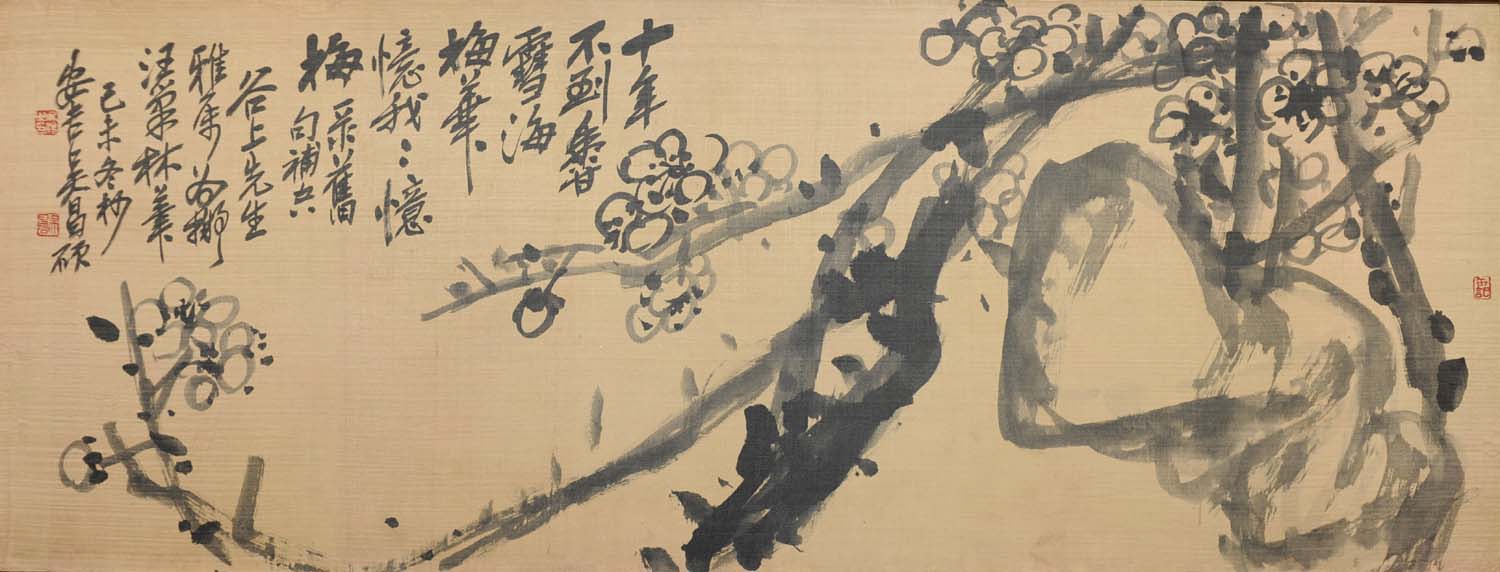 十年
不到香
雪海
梅華
憶我〻憶
梅采舊
句補空
谷上先生
雅屬為
汪巢林筆
己未冬杪
安吉吳昌碩